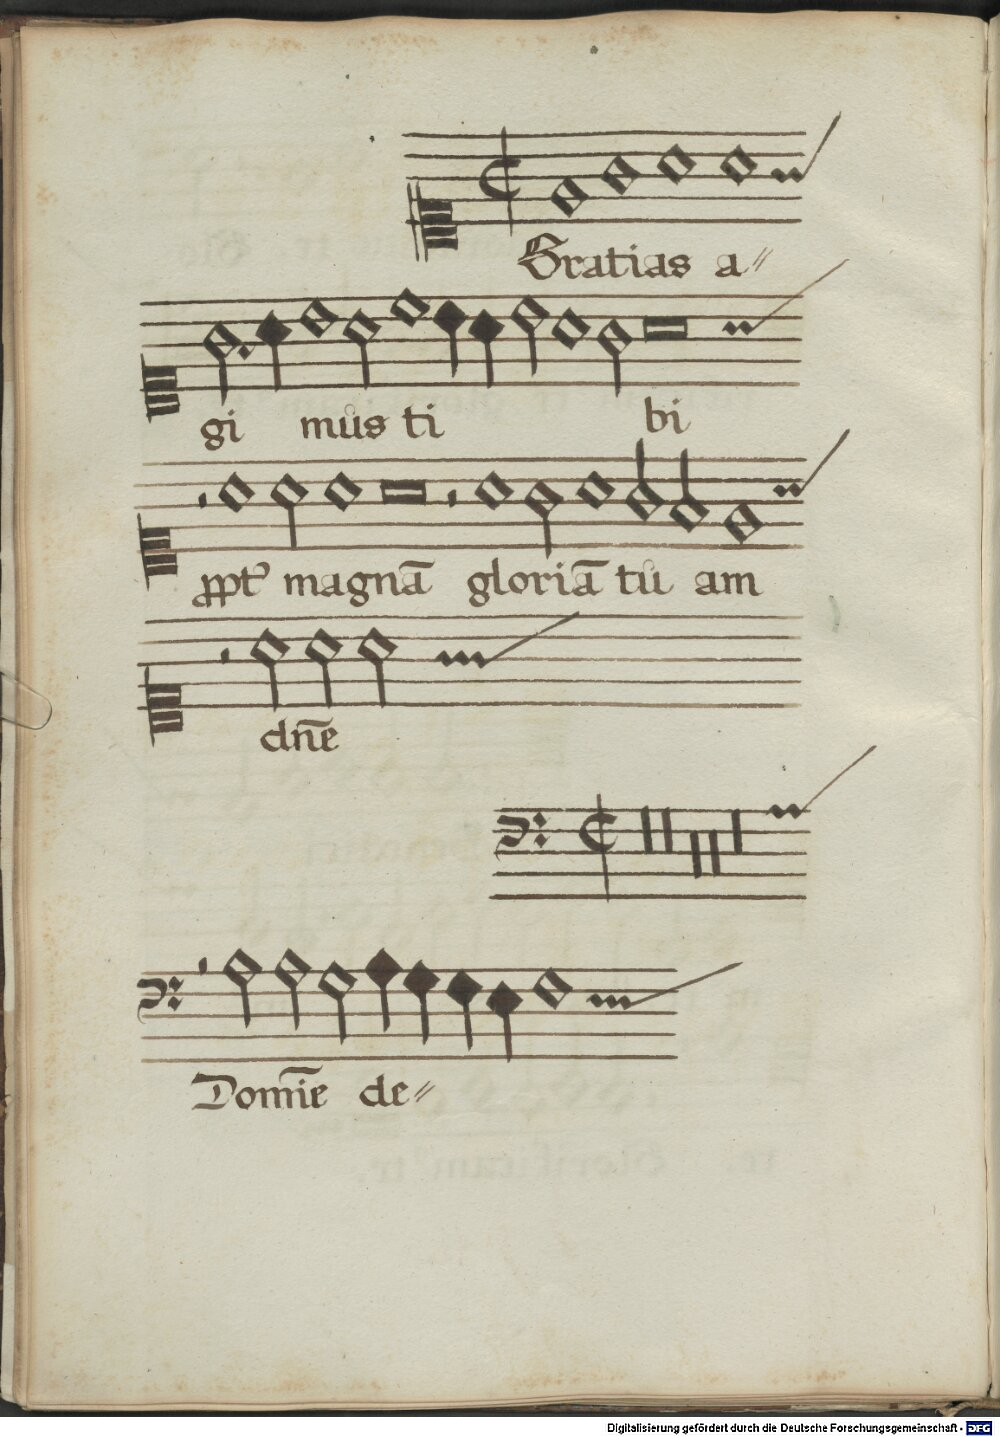 Gratias a〃
gi mus ti bi
ꝓpt' magnā gloriā tu am
dñe
Domīe de〃
Digitalisierung gefördert durch die Deutsche Forschungsgemeinschaft - DFG